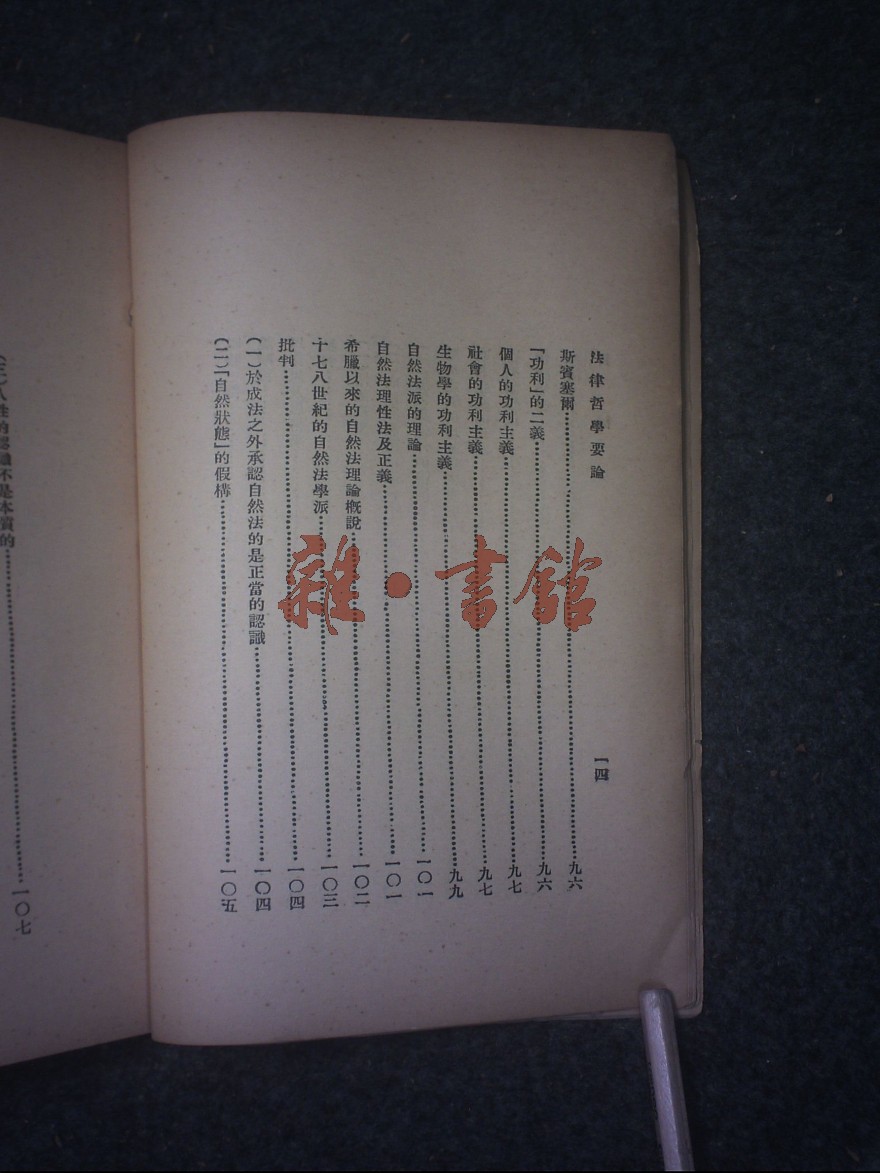 法律哲學要論
一四
斯賓塞爾……九六
「功利」的二義……九六
個人的功利主義……九七
社會的功利主義……九七
生物學的功利主義……九九
自然法派的理論……一〇一
自然法理性法及正義……一〇一
希臘以來的自然法理論槪說……一〇二
十七八世紀的自然法學派……一〇三
批判……一〇四
(一)於成法之外承認自然法的是正當的認識……一〇四
(二)「自然狀態」的假構……一〇五
不是本質的……一〇七
雜·書館